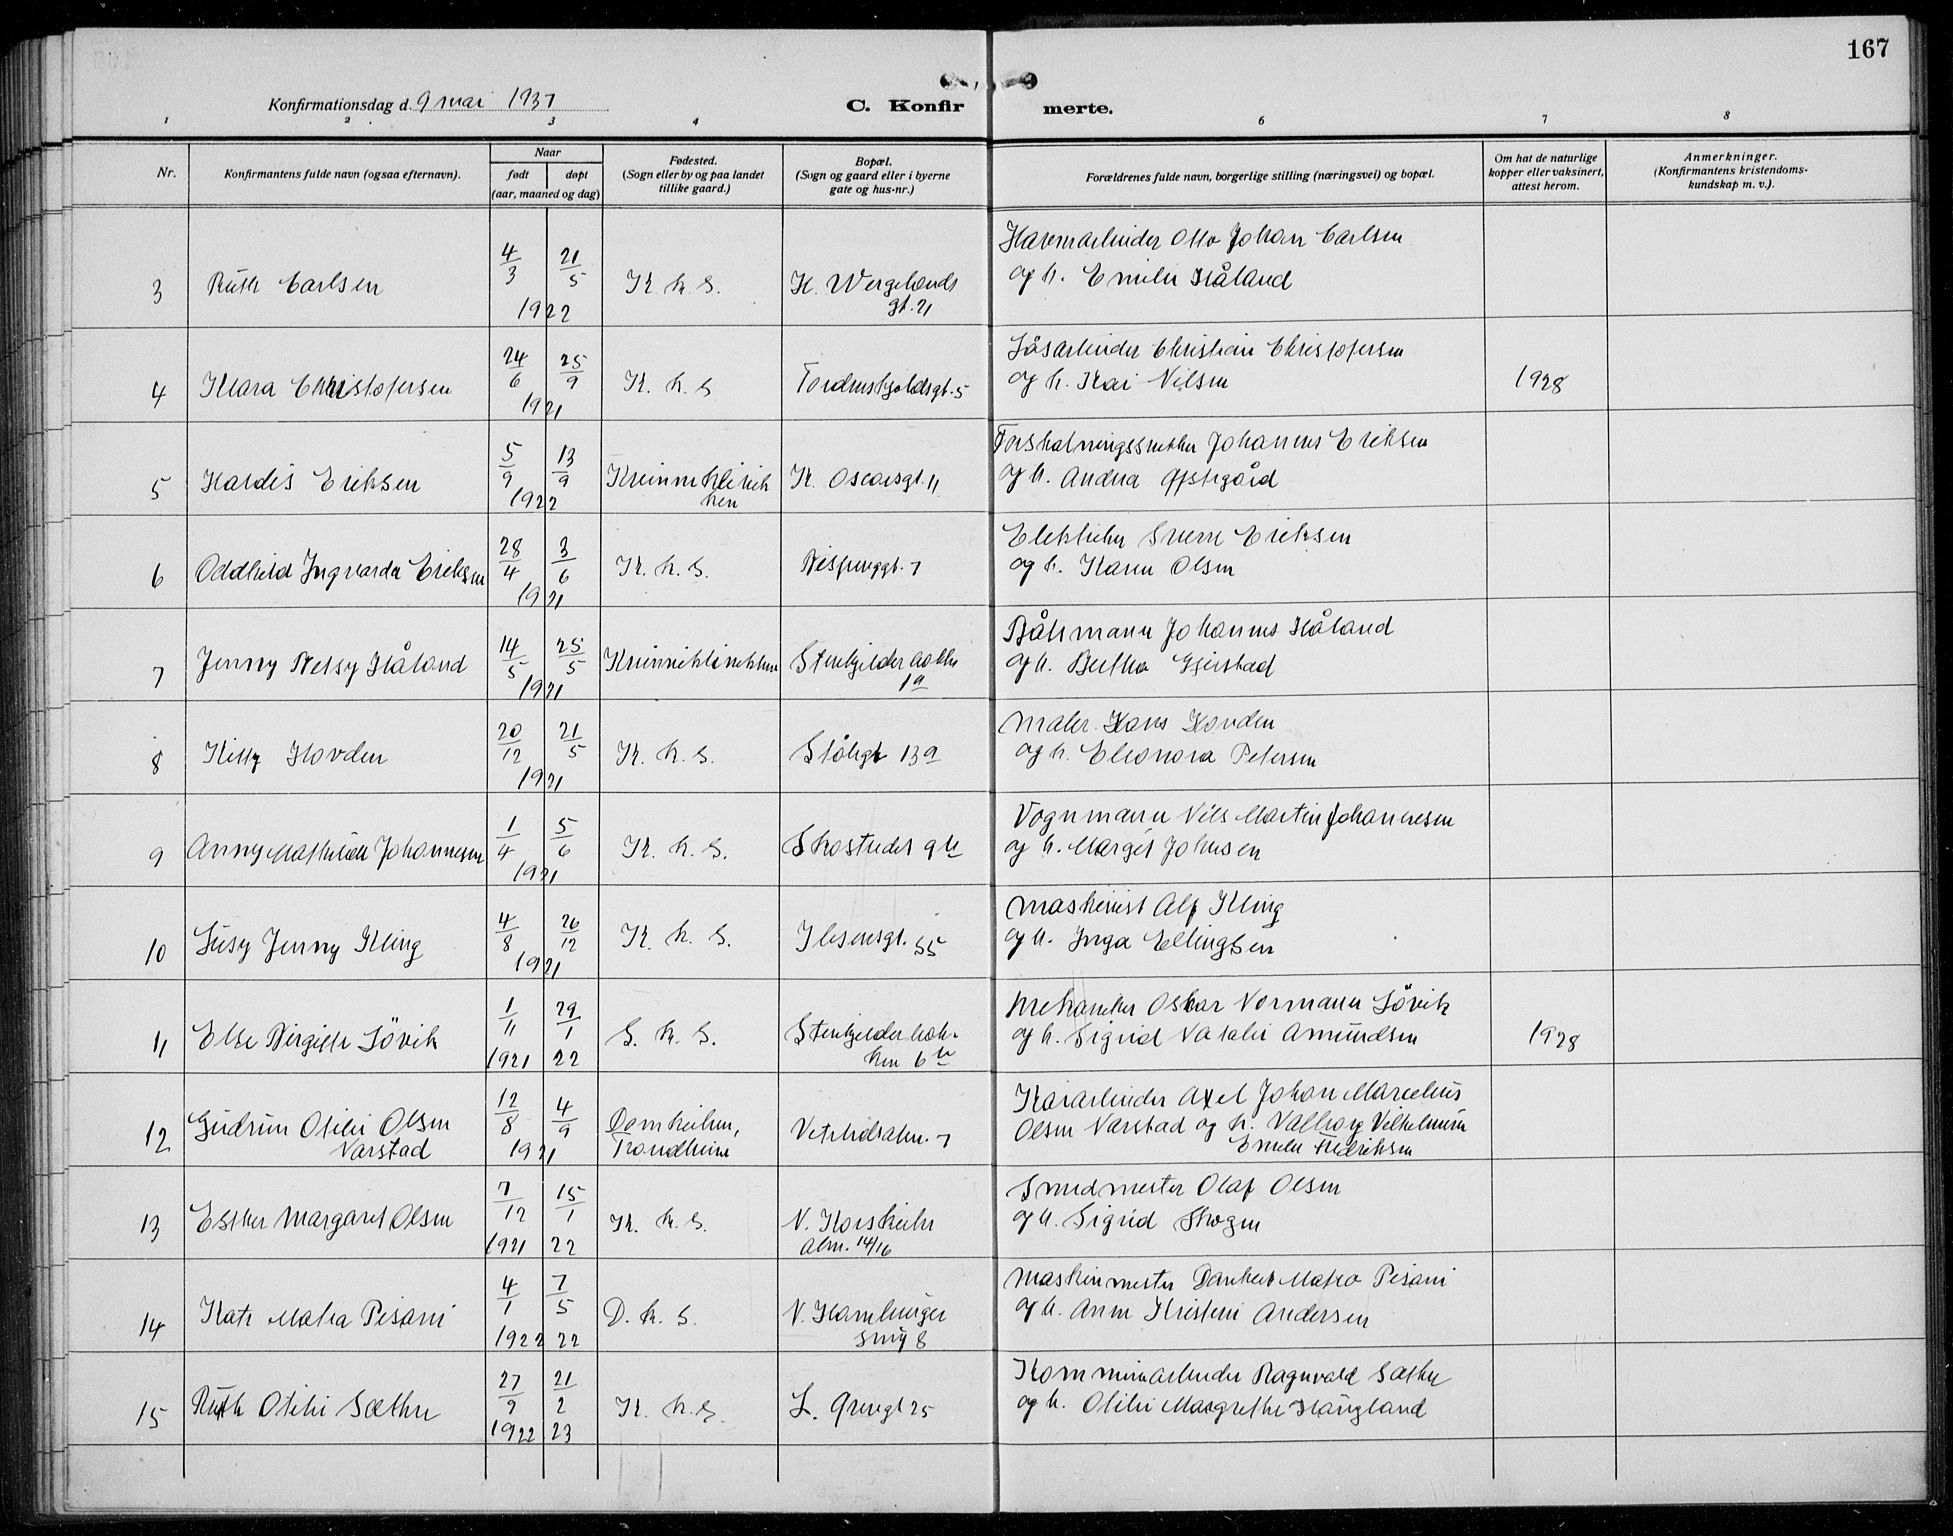 167
Konfirmationsdag d. 9 mai 1937
C. Konfirmerte.
1 2 3 4 6 7 8
Nr.
Konfirmantens fulde navn (ogsaa efternavn).
Naar
født døpt
(aar, maaned og dag)
Fødested.
(Sogn eller by og paa landet
tillike gaard.)
Bopæl.
(Sogn og gaard eller i byerne
gate og hus-nr.)
Forældrenes fulde navn, borgerlige stilling (næringsvei) og bopæl.
Om hat de naturlige
kopper eller vaksinert,
attest herom.
Anmerkninger.
(Konfirmantens kristendoms-
kundskap m. v.).
3 Ruth Carlsen 4/3 21/5 1922 K. k. S. H. Wergelands
gt. 21
Havnarbeider Otto Johan Carlsen
og h. Emilie Håland
4 Klara Christofersen 24/6 25/9 1921 K. k. S. Tordenskjoldsgt. 5
Løsarbeider Christian Christofersen
og h. Kari Nilsen 1928
5 Hardis Eriksen 5/9 13/9 1922 Kvinneklinik
ken K. Oscarsgt. 11
Forskalningssnekker Johannes Eriksen
og h. Andrea Opstegård
6 Oddhild Ingvarda Eriksen 28/4 3/6 1921 K. k. S. Bispenggt. 7
Elektriker Sverre Eriksen
og h. Karen Olsen
7 Jenny Betsy Håland 14/5 25/5 1921 Kvinneklinikken Stenkjelderbakke
1a
Båtsmann Johannes Håland
og h. Bertha Gjerstad
8 Kitty Hovden 20/12 21/5 1921 K. k. S. Stølegt 13a
Maler Hans Hovden
og h. Eleonora Petersen
9 Anny Mathilde Johannesen 1/4 5/6 1921 K. k. S. Skostredet 9b
Vognmann Nils Martin Johannesen
og h. Margit Johnsen
10 Susy Jenny Kling 4/8 26/12 1921 K. k. S. Ibsensgt. 55
Maskinist Alf Kling
og h. Inga Ellingsen
11 Else Birgitte Løvik 1/11 29/1 1921 22 S. k. S. Stenkjelderbak-
ken 6b
Mekaniker Oskar Normann Løvik
og h. Sigrid Natalie Amundsen 1928
12 Gudrun Otilie Olsen
Varstad 12/8 4/9 1921 Domkirken,
Trondheim Vetrlidsalm. 7
Kaiarbeider Axel Johan Marcelius
Olsen Varstad og h. Valborg Vilhelmine
Emilie Fredriksen
13 Esther Margaret Olsen 7/12 15/1 1921 22 K. k. S. N. Korskirke
alm. 14/16
Smedmester Olaf Olsen
og h. Sigrid Skogen
14 Kate Matea Pisani 4/1 7/5 1922 22 D. k. S. N. Hamburger
smug 8
Maskinmester Dankert Mateo Pisani
og h. Anne Kristine Andersen
15 Ruth Otilie Sæthre 27/9 21/2 1922 23 K. k. S. L. Øvregt 25
Kommunearbeider Ragnvald Sæthre
og h. Otilie Margrethe Haugland